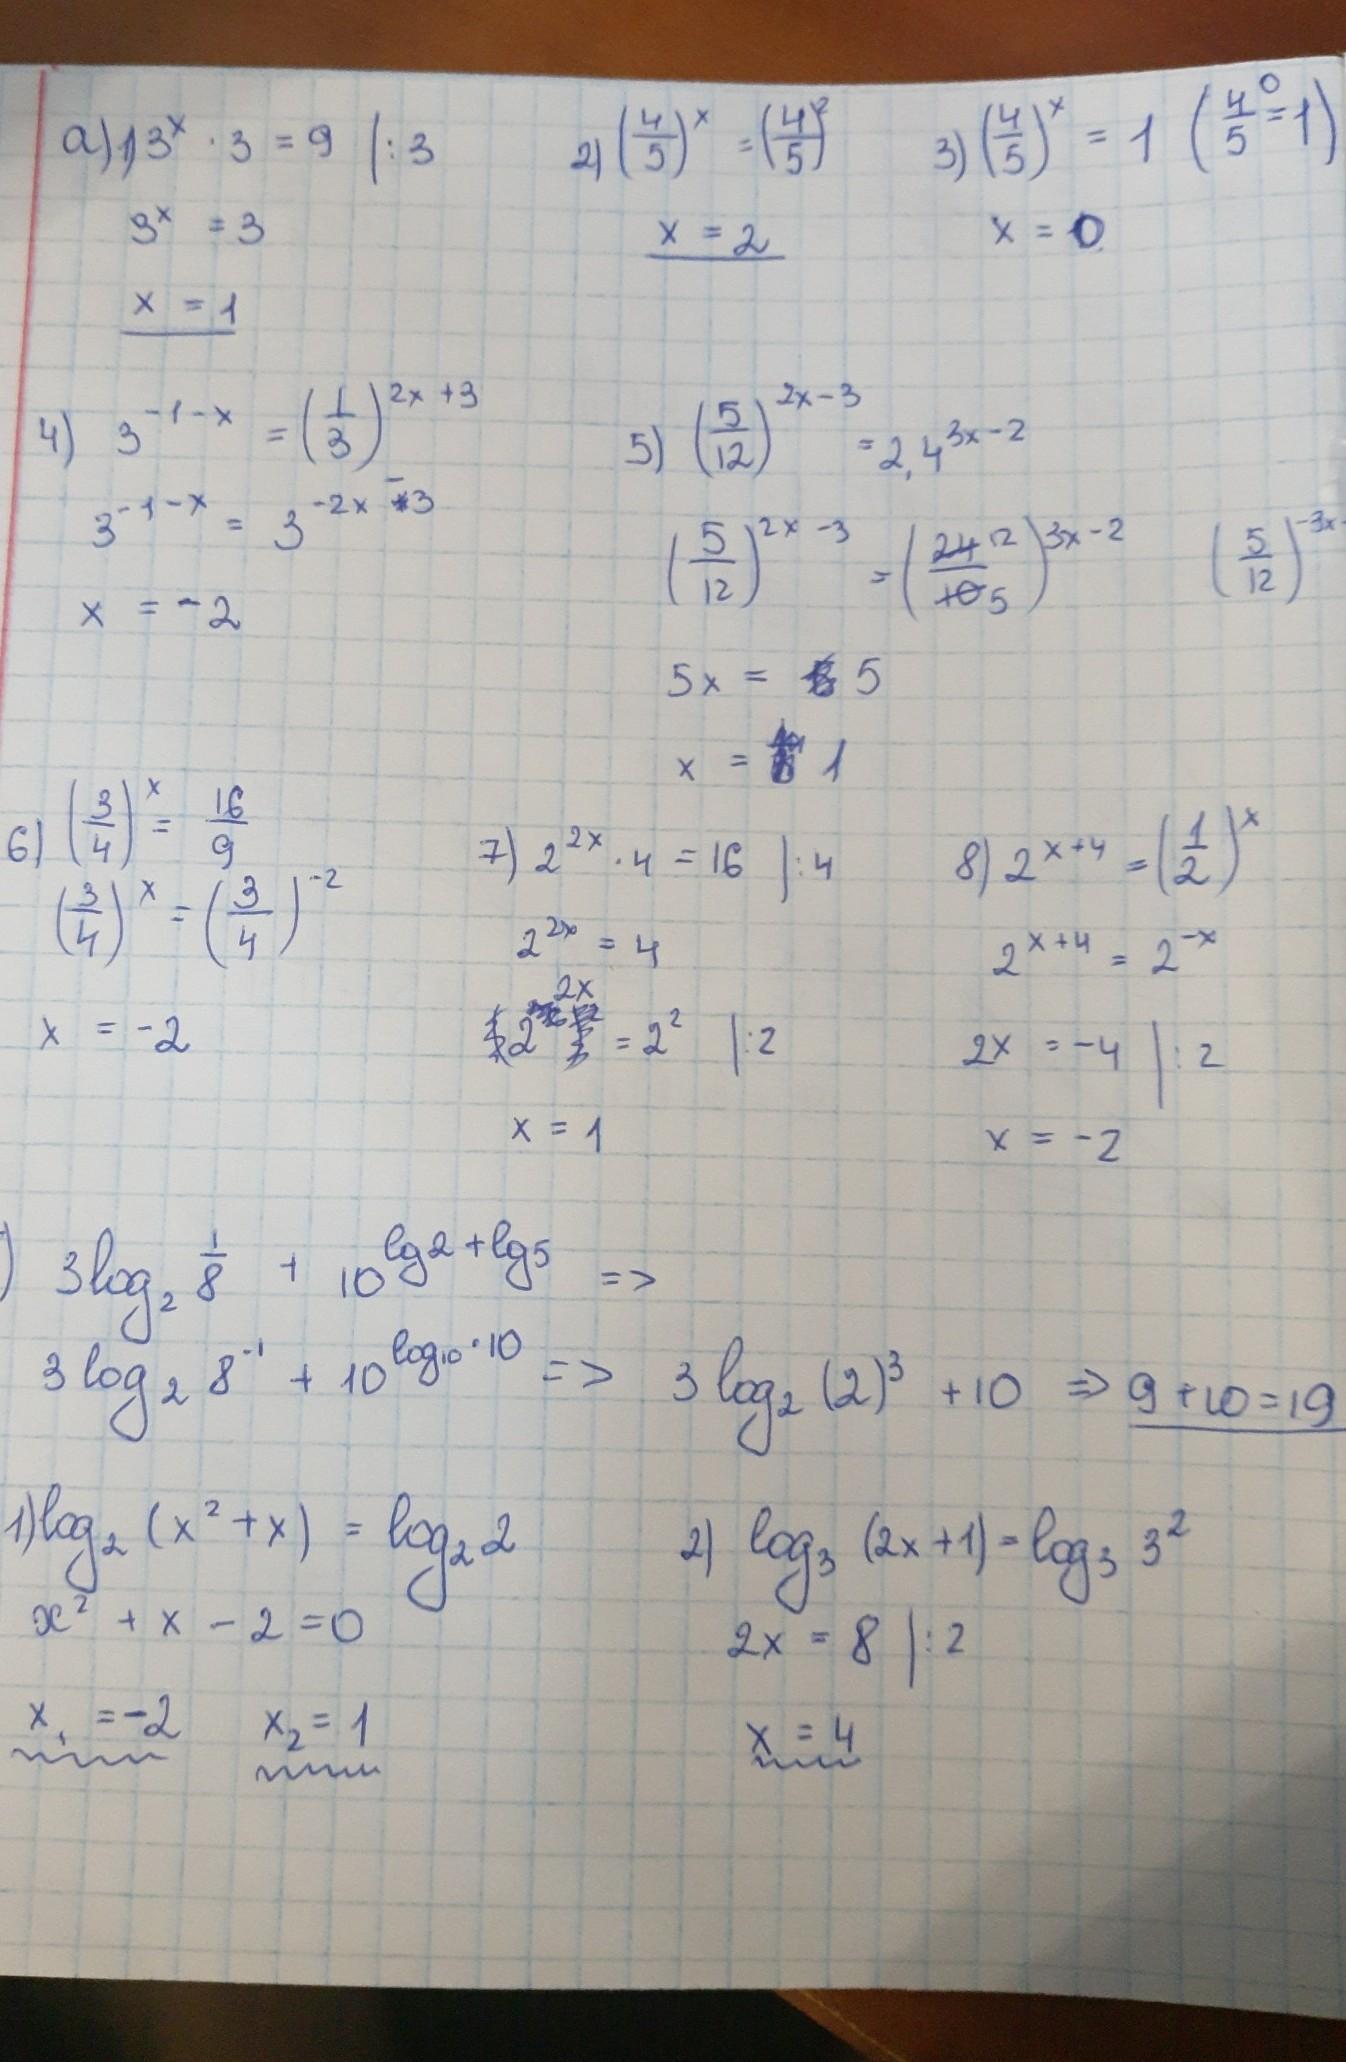 a) 1) 3^x · 3 = 9 |:3
3^x = 3
x = 1
2) (4/5)^x = (4/5)^2
x = 2
3) (4/5)^x = 1 (4/5^0 = 1)
x = 0
4) 3^(-1-x) = (1/3)^(2x+3)
3^(-1-x) = 3^(-2x-3)
x = -2
5) (5/12)^(2x-3) = 2,4^(3x-2)
(5/12)^(2x-3) = (12/5)^(3x-2) (5/12)^(-3x
5x = 5
x = 1
6) (3/4)^x = 16/9
(3/4)^x = (3/4)^(-2)
x = -2
7) 2^(2x) · 4 = 16 |:4
2^(2x) = 4
2^(2x) = 2^2 |:2
x = 1
8) 2^(x+4) = (1/2)^x
2^(x+4) = 2^(-x)
2x = -4 |:2
x = -2
) 3log₂ 1/8 + 10^(lg2+lg5) =>
3log₂ 8^(-1) + 10^(log₁₀·10) => 3log₂ (2)^3 + 10 => 9+10=19
1) log₂ (x²+x) = log₂ 2
x² + x - 2 = 0
x₁ = -2 x₂ = 1
2) log₃ (2x+1) = log₃ 3²
2x = 8 |:2
x = 4